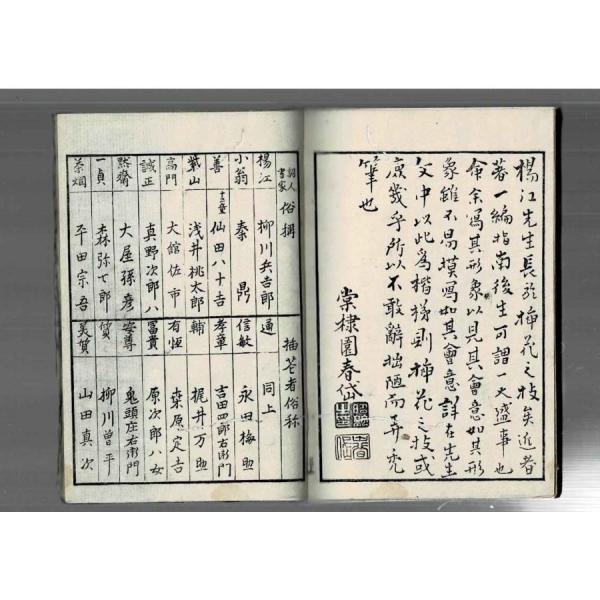 楊江先生長於挿花之技矣近者
著一編指南後生可謂大盛事也
命余寫其形象以見其會意如其形
象雖不易摸寫如其會意詳在先生
文中以此為楷様則挿花之技或
庶幾乎所以不敢辭拙陋而弄禿
筆也
棠棣園春岱
俗撰 挿花者俗称
楊江 柳川兵吉郎 通 同上
小翁 秦鼎 信敏 永田梅助
善 十六童 仙田八十吉 孝單 吉田四郎右衛門
紫山 浅井桃太郎 輔 梶井万助
高門 大舘佐市 有恒 桑原定吉
誠正 真野次郎八 富貴 原次郎八女
黙齋 大屋孫彦 安尊 鬼頭庄右衛門
一貞 森弥七郎 質 柳川曾平
茶烟 平田宗吾 美質 山田真次